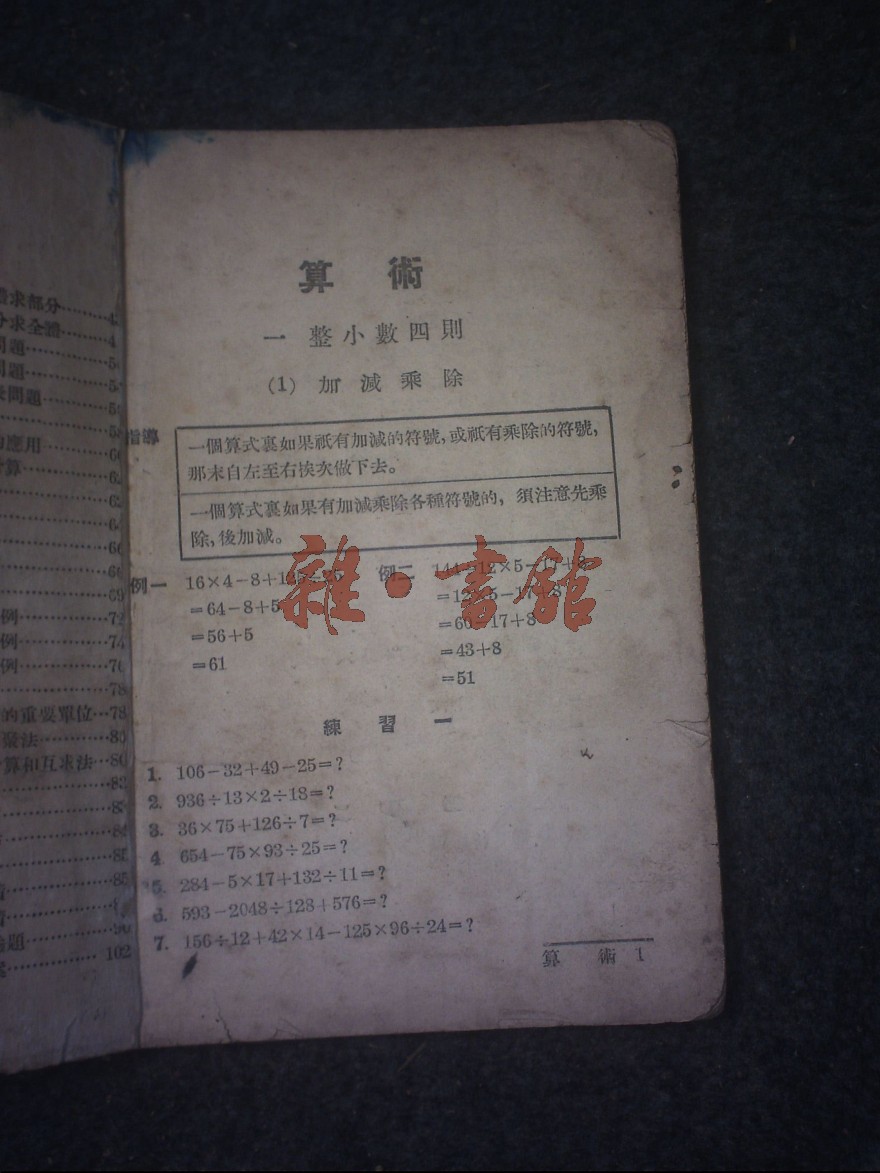 體求部分……
分求全體……
問題……
問題……
問題……
的應用……60
計算……
例……72
例……74
例……76
……78
的重要單位…78
聚法……80
算和互求法…80
……83
題……
……102
算術
一 整小數四則
(1) 加減乘除
指導
一個算式裏如果祇有加減的符號,或祇有乘除的符號,
那末自左至右挨次做下去。
一個算式裏如果有加減乘除各種符號的, 須注意先乘
除,後加減。
例一 16×4-8+125÷25
=64-8+5
=56+5
=61
例二 144÷12×5-17+8
=12×5-17+8
=60-17+8
=43+8
=51
雜·書館
練習一
1. 106-32+49-25=?
2. 936÷13×2÷18=?
3. 36×75+126÷7=?
4 654-75×93÷25=?
5. 284-5×17+132÷11=?
6. 593-2048÷128+576=?
7. 156÷12+42×14-125×96÷24=?
算術 1